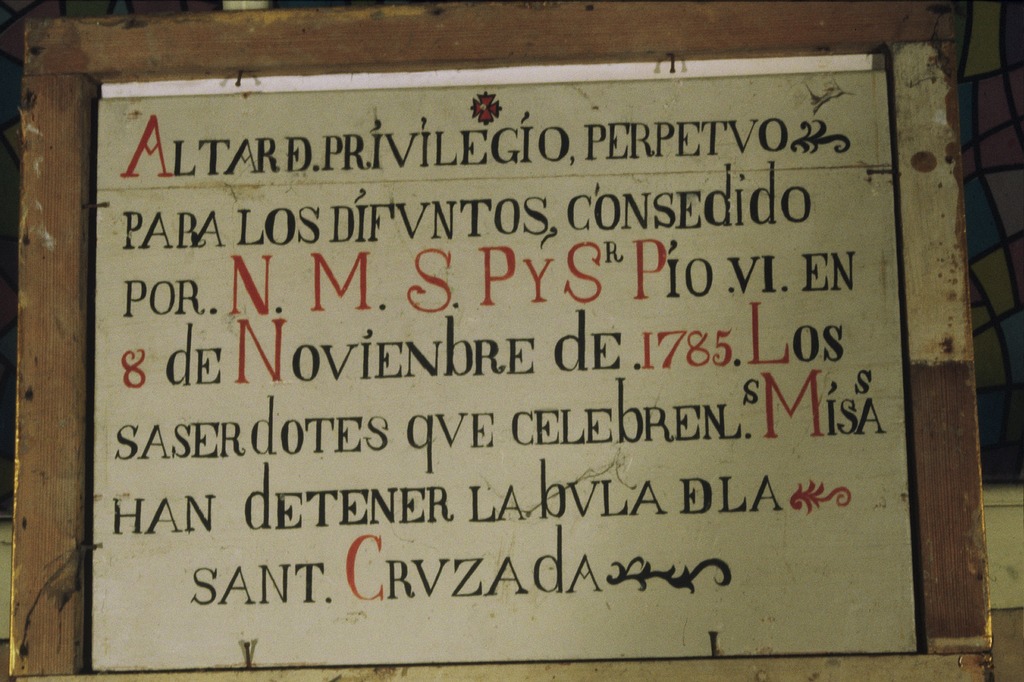 ALTAR Ð. PRIVILEGIO, PERPETVO
PARA LOS DIFVNTOS, CONSEdIdO
POR. N. M. S. P Y Sʀ PIO .VI. EN
8 dE NOVIENbRE dE .1785. LOS
SASERdOTES qVE CELEbREN L.ˢ MISAˢ
HAN dETENER LA bVLA ÐLA
SANT. CRVZAdA